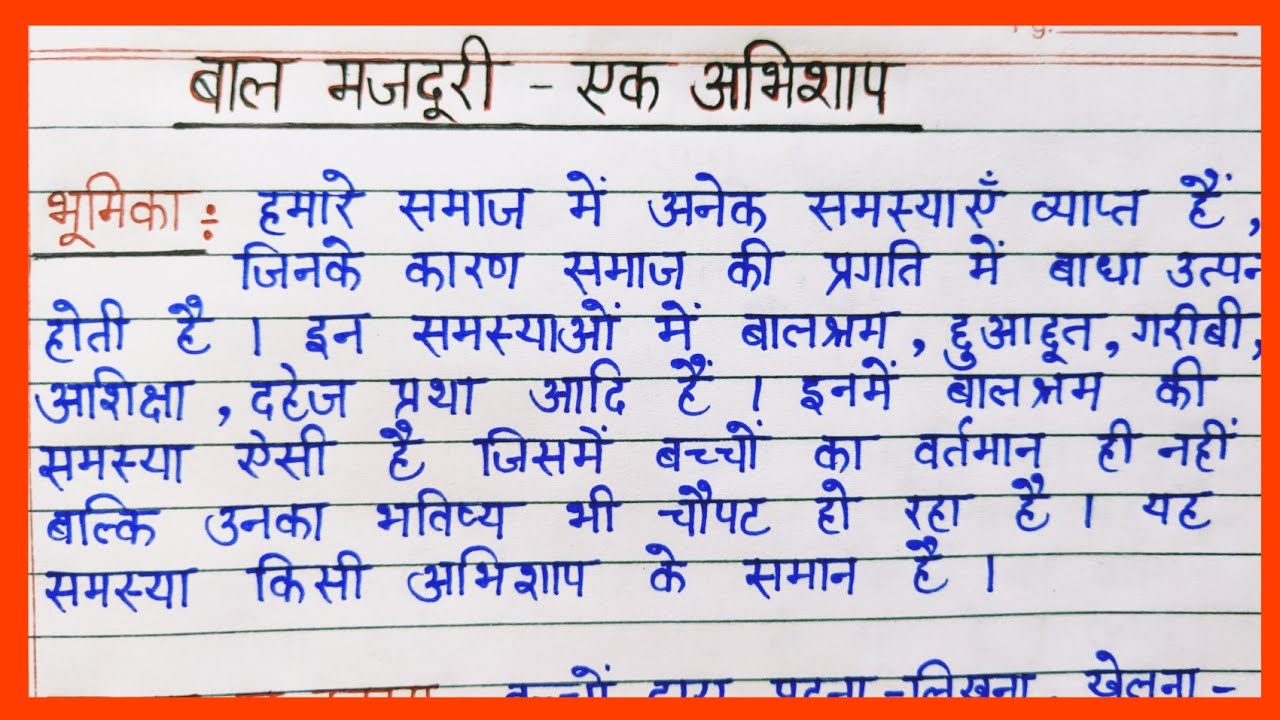 Pg.
बाल मजदूरी - एक अभिशाप
भूमिका : हमारे समाज में अनेक समस्याएँ व्याप्त हैं,
जिनके कारण समाज की प्रगति में बाधा उत्पन
होती है । इन समस्याओं में बालश्रम, छुआछूत, गरीबी,
अशिक्षा, दहेज प्रथा आदि हैं । इनमें बालश्रम की
समस्या ऐसी है जिसमें बच्चों का वर्तमान ही नहीं
बल्कि उनका भविष्य भी चौपट हो रहा है । यह
समस्या किसी अभिशाप के समान है ।
पढ़ना-लिखना, खेलना-